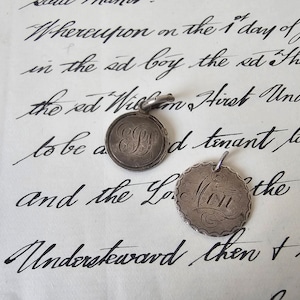 Whereupon on the 1st day of
in the sd boy the sd Th
the sd William Hirst Und
to be a d tenant to
and the Lo the
Understeward then &
Min